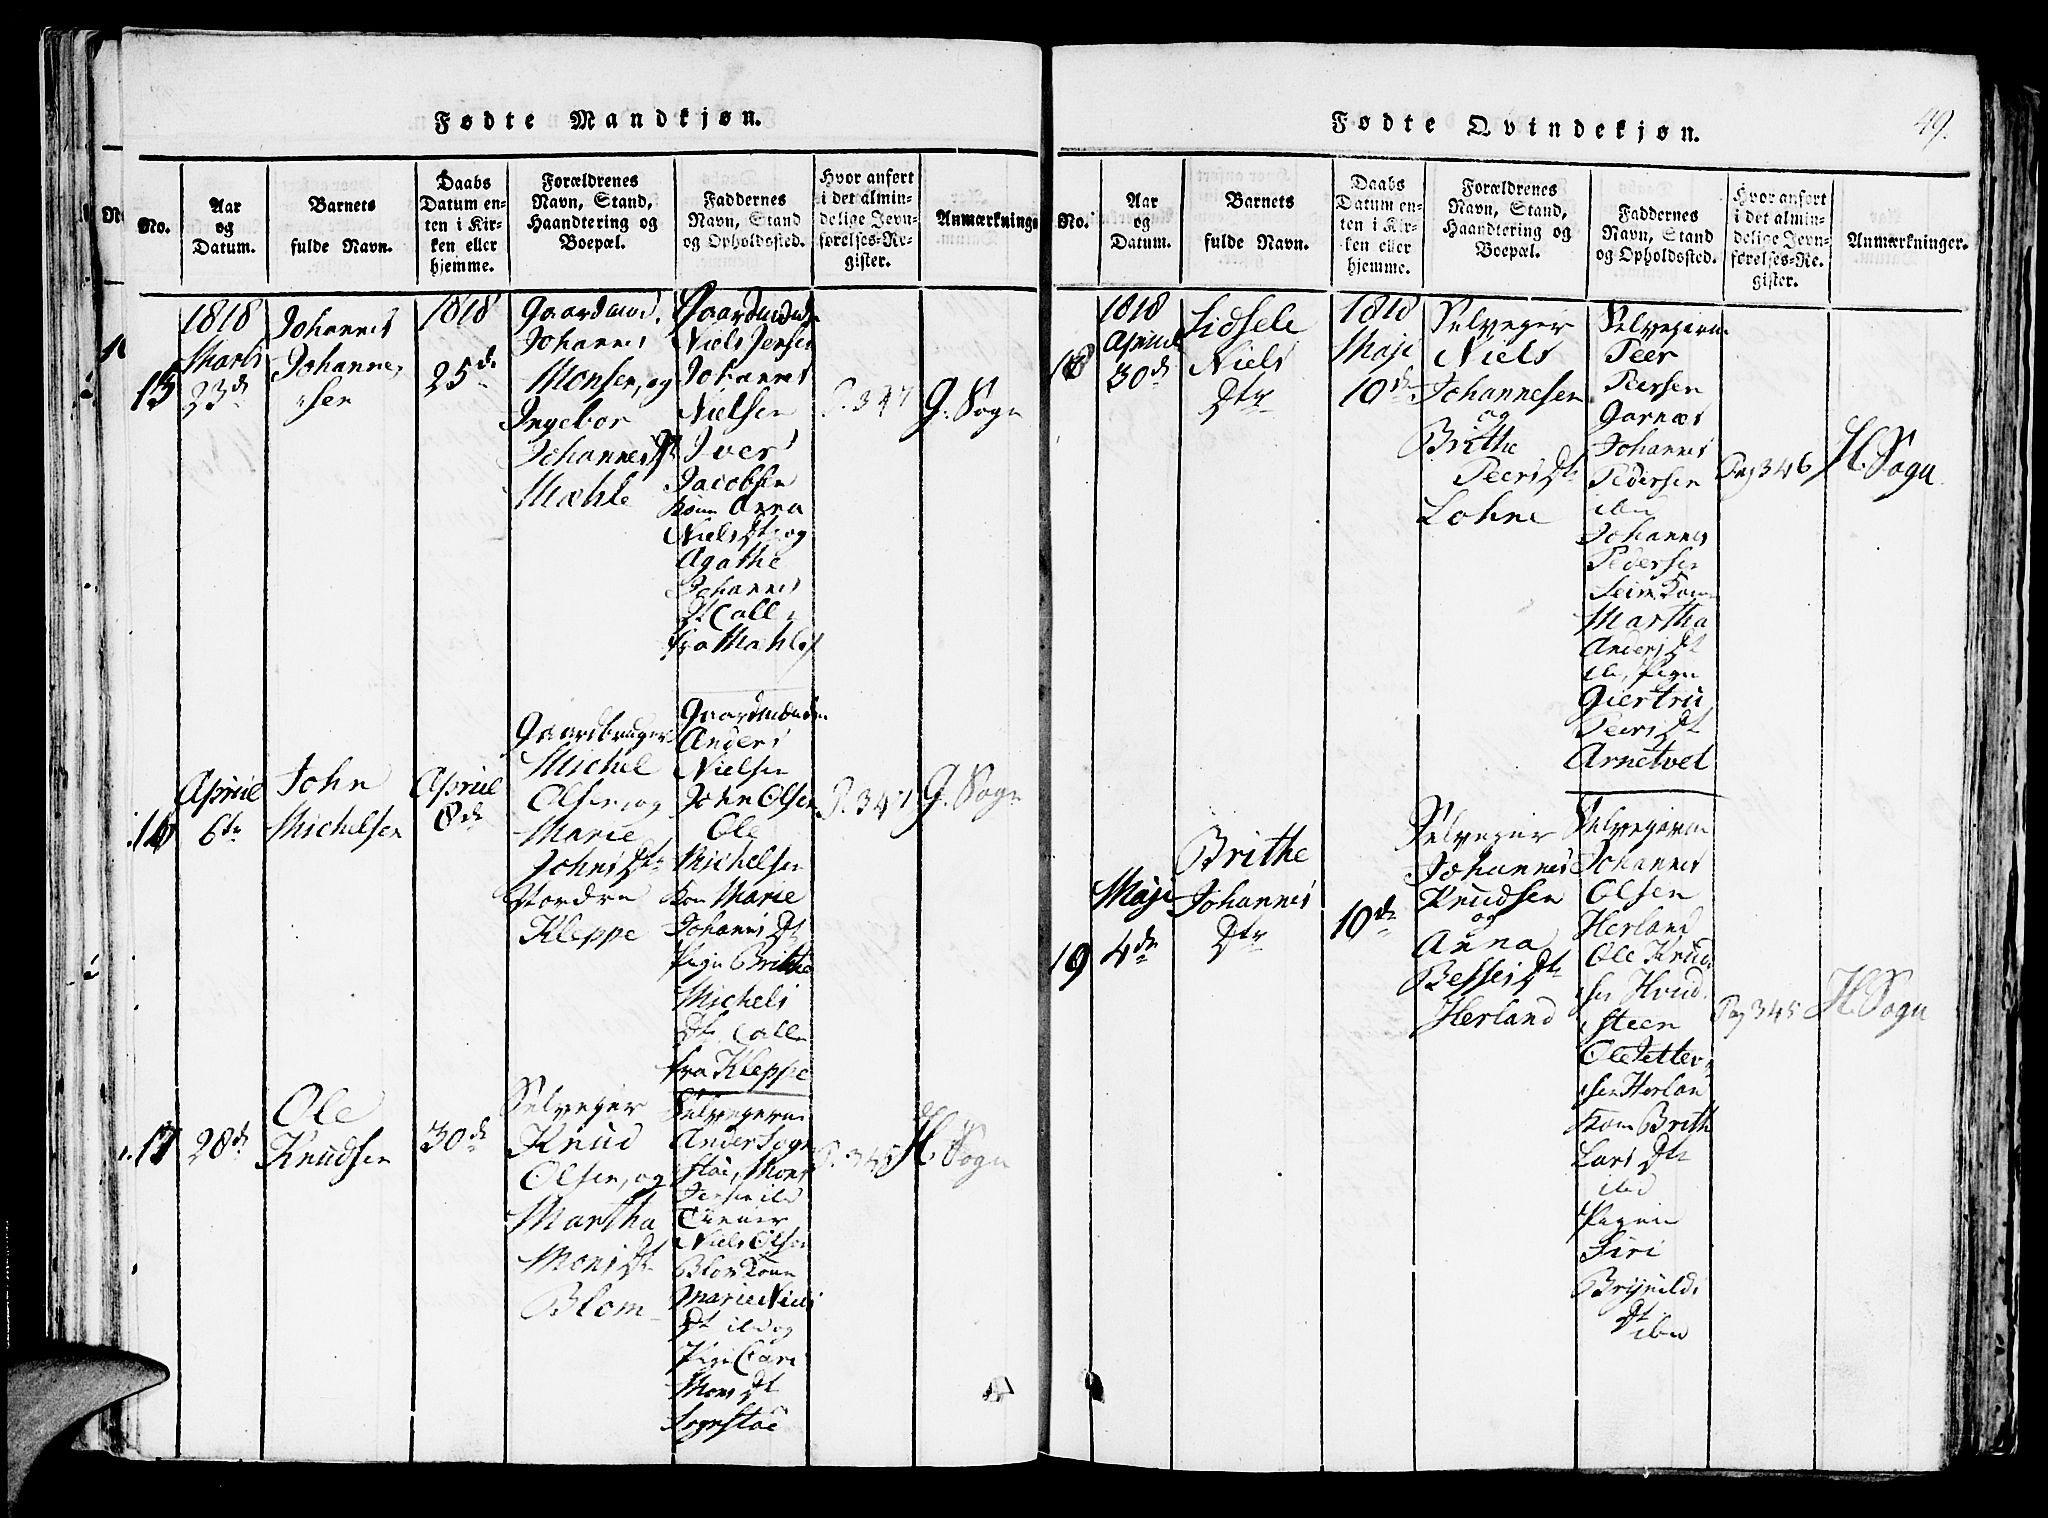 Fødte Mandkjøn.
No.
Aar
og
Datum.
Barnets
fulde Navn.
Daabs
Datum en-
ten i Kir-
ken eller
hjemme.
Forældrenes
Navn, Stand,
Haandtering og
Boepæl.
Faddernes
Navn, Stand
og Opholdssted.
Hvor anført
i det almin-
delige Jevn-
førelses-Re-
gister.
Anmærkning
15
1818
Marts
23de
Johannes
Johanne,
sen
1818
25de
Gaardmd.
Johannes
Monsen, og
Ingebor
JohannesDt
Mæhle
Niels Jensen
Johannes
Nielsen
Iver
Jacobsen
Kone Anna
Niels Dt og
Agathe
Johannes
Dt Alle
fra Mæhle
P. 347
G. Sogn
16
Apriil
6te
John
Michelsen
Apriil
8de
Gaardbruger
Michel
Olsen, og
Marie
Johns Dtr
Nordre
Kleppe
Gaardmænde
Anders
Nielsen
John Olsen
Ole
Michelsen
Kon Marie
Johannes Dt
Pige Brithe
Michels
Dt. Alle
fra Kleppe
P. 347
G. Sogn
17
28de
Ole
Knudsen
30de
Selveger
Knud
Olsen, og
Martha
Mons Dtr
Blom
Selvegerne
Anders Sogn
stæe, Mons
Jensen ibd
Niels Olsen
Blom Kone
Marie Niels
Dt ibd og
Mons Dt
Sognstæe
P. 345
H. Sogn
Fødte Qvindekjøn.
49.
No.
Aar
og
Datum.
Barnets
fulde Navn.
Daabs
Datum en-
ten i Kir-
ken eller
hjemme.
Forældrenes
Navn, Stand,
Haandtering og
Boepæl.
Faddernes
Navn, Stand
og Opholdssted.
Hvor anført
i det almin-
delige Jevn-
førelses-Re-
gister.
Anmærkninger.
18
1818
Apriil
30de
Sidsele
Niels
Dtr
1818
Maji
10de
Selveger
Niels
Johannesen
og
Brithe
Peers Dtr
Lohne
Selvegerne
Peer
Peersen
Garnæs
Johannes
Pedersen
ibd
Johannes
Pedersen
Seim Kone
Martha
Anders Dt
ibd, Pigen
Giertru
Peers Dt
Arnetvet
Pag 346
H. Sogn
19
Maji
4de
Brithe
Johannes
Dtr
10de
Selveger
Johannes
Knudsen
og
Anna
Besses Dtr
Herland
Selvegerne
Johannes
Olsen
Herland
Ole Knud
sen Hvid
steen
Ole Petter
sen Herlan
Kone Brith
Lars Dtr
ibd
Pigen
Siri
Brynilds
Dt
ibd
Pag 345
H. Sogn